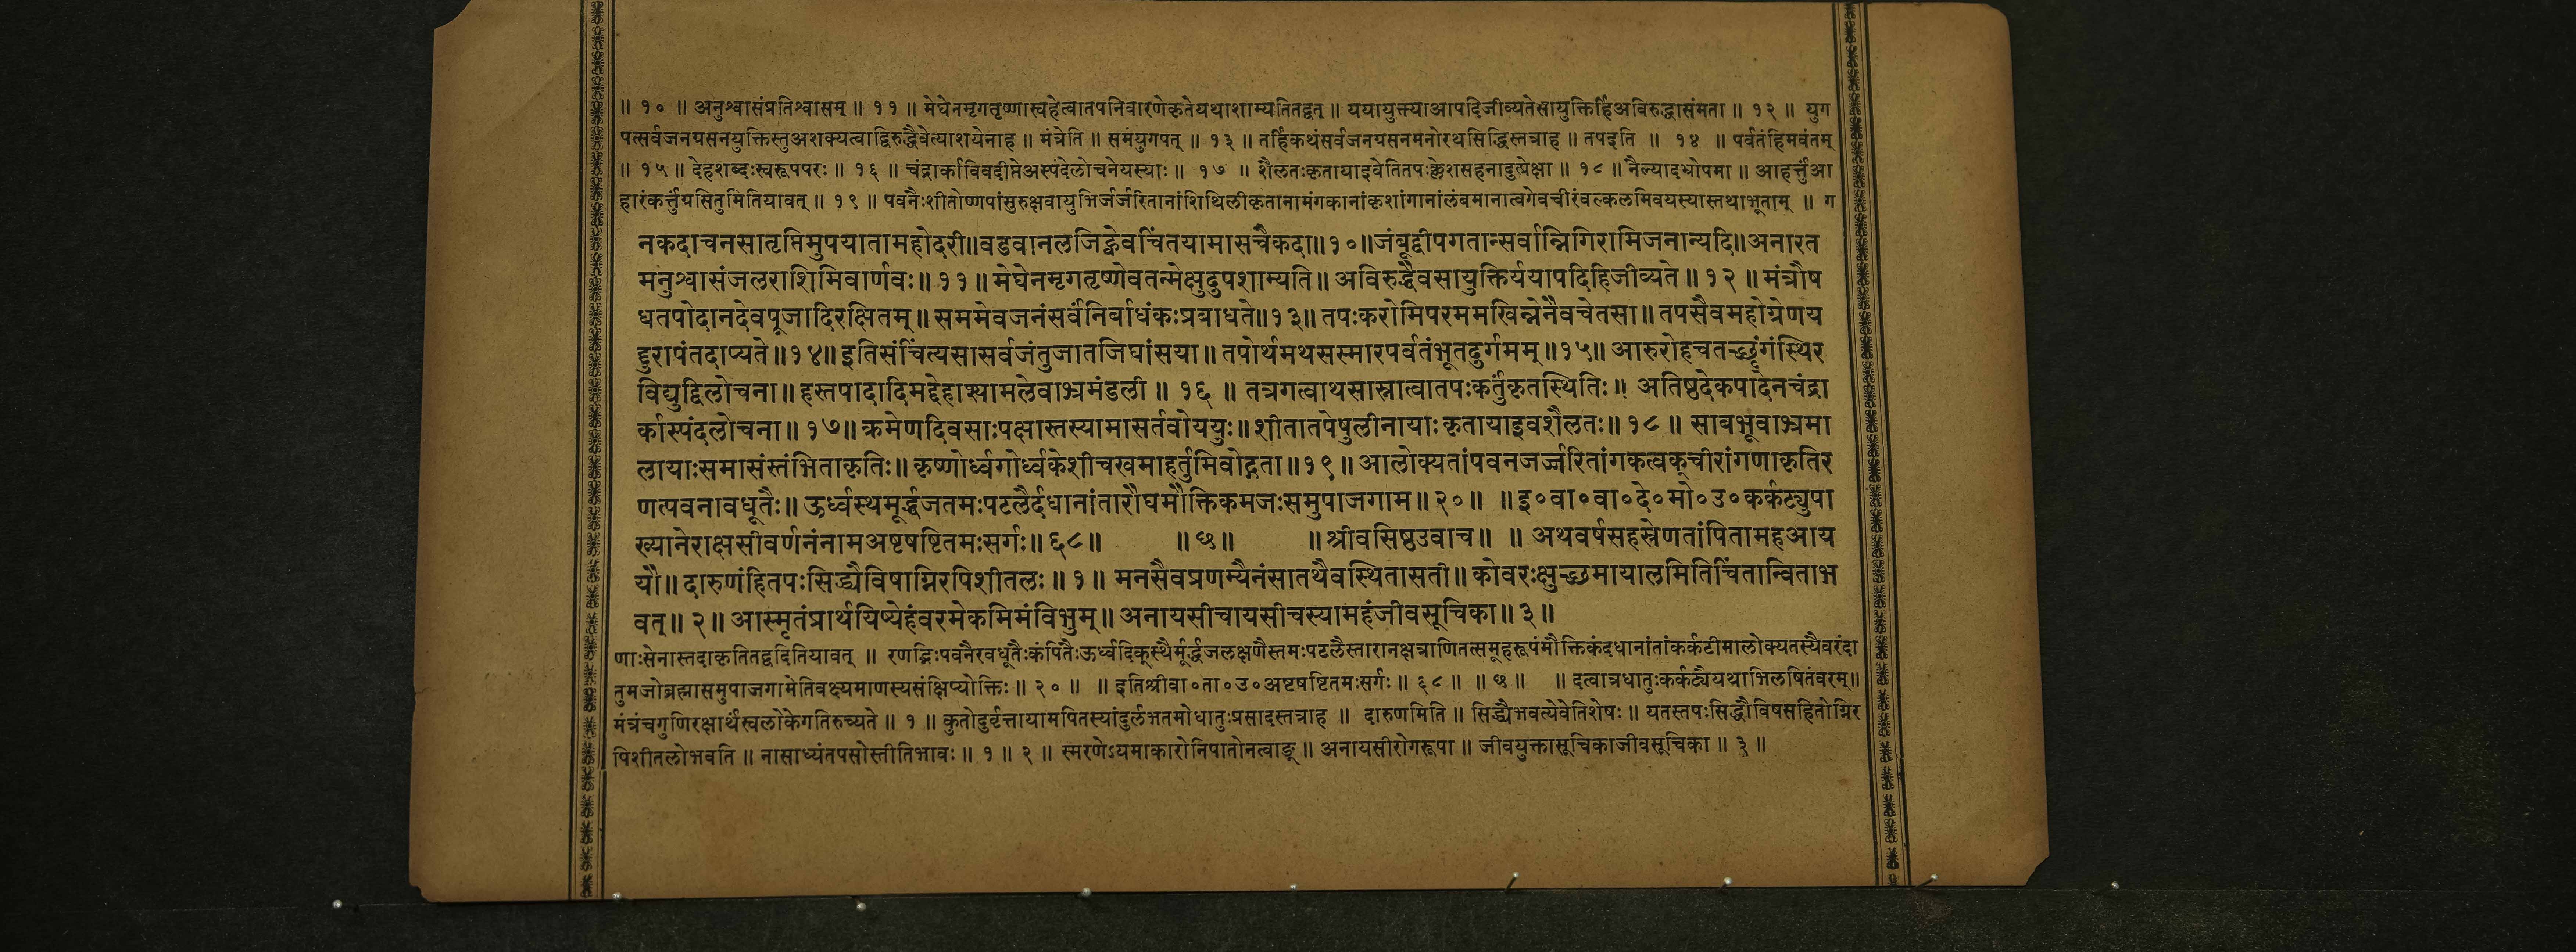 ॥ १० ॥ अनुश्वासंप्रतिश्वासम् ॥ ११ ॥ मेघेनमृगतृष्णास्वहेत्वातपनिवारणेकृतेयथाशाम्यतितद्वत् ॥ ययायुक्त्याआपदिजीव्यतेसायुक्तिर्हिअविरुद्धासंमता ॥ १२ ॥ युग
पत्सर्वजनग्रसनयुक्तिस्तुअशक्यत्वाद्विरुद्धैवेत्याशयेनाह ॥ मंत्रेति ॥ समंयुगपत् ॥ १३ ॥ तर्हिकथंसर्वजनग्रसनमनोरथसिद्धिस्तत्राह ॥ तपइति ॥ १४ ॥ पर्वतंहिमवंतम्
॥ १५ ॥ देहशब्दःस्वरूपपरः ॥ १६ ॥ चंद्रार्काविवदीप्तेअस्पंदेलोचनेयस्याः ॥ १७ ॥ शैलतःकृतायाइवेतितपःक्लेशसहनादुत्प्रेक्षा ॥ १८ ॥ नैल्यादभ्रोपमा ॥ आहर्त्तुंआ
हारंकर्त्तुंग्रसितुमितियावत् ॥ १९ ॥ पवनैःशीतोष्णपांसुरुक्षवायुभिर्जर्जरितानांशिथिलीकृतानामंगकानांकृशांगानांलंबमानात्वगेवचीरंवल्कलमिवयस्यास्तथाभूताम् ॥ ग
नकदाचनसातृप्तिमुपयातामहोदरी॥वडवानलजिह्वेवचिंतयामासचैकदा॥१०॥जंबूद्वीपगतान्सर्वान्निगिरामिजनान्यदि॥अनारत
मनुश्वासंजलराशिमिवार्णवः॥ ११ ॥ मेघेनमृगतृष्णेवतन्मेक्षुदुपशाम्यति॥ अविरुद्धैवसायुक्तिर्ययापदिहिजीव्यते ॥ १२ ॥ मंत्रौष
धतपोदानदेवपूजादिरक्षितम्॥ सममेवजनंसर्वंनिर्बाधंकःप्रबाधते॥१३॥ तपःकरोमिपरममखिन्नेनैवचेतसा॥ तपसैवमहोग्रेणय
द्दुरापंतदाप्यते॥१४॥ इतिसंचिंत्यसासर्वजंतुजातजिघांसया॥ तपोर्थमथसस्मारपर्वतंभूतदुर्गमम्॥१५॥ आरुरोहचतच्छृंगंस्थिर
विद्युद्विलोचना॥ हस्तपादादिमद्देहाश्यामलेवाभ्रमंडली ॥ १६ ॥ तत्रगत्वाथसास्नात्वातपःकर्तुंकृतस्थितिः॥ अतिष्ठदेकपादेनचंद्रा
र्कास्पंदलोचना॥ १७॥ क्रमेणदिवसाःपक्षास्तस्यामासर्तवोययुः॥ शीतातपेषुलीनायाः कृतायाइवशैलतः॥ १८ ॥ साबभूवाभ्रमा
लायाःसमासंस्तंभिताकृतिः॥ कृष्णोर्ध्वगोर्ध्वकेशीचखमाहर्तुमिवोद्गता॥ १९॥ आलोक्यतांपवनजर्ज्जरितांगकत्वक्चीरांगणाकृतिर
णत्पवनावधूतैः॥ ऊर्ध्वस्थमूर्द्धजतमःपटलैर्दधानांतारौघमौक्तिकमजःसमुपाजगाम॥ २०॥ ॥ इ०वा०वा०दे०मो०उ०कर्कट्युपा
ख्यानेराक्षसीवर्णनंनामअष्टषष्टितमःसर्गः॥ ६८॥ ॥ छ॥ ॥ श्रीवसिष्ठउवाच॥ ॥ अथवर्षसहस्रेणतांपितामहआय
यौ॥ दारुणंहितपःसिद्ध्यैविषाग्निरपिशीतलः ॥ १॥ मनसैवप्रणम्यैनंसातथैवस्थितासती॥ कोवरःक्षुच्छमायालमितिचिंतान्विताभ
वत्॥ २॥ आस्मृतंप्रार्थयिष्येहंवरमेकमिमंविभुम्॥ अनायसीचायसीचस्यामहंजीवसूचिका॥ ३॥
णाःसेनास्तदाकृतितद्वदितियावत् ॥ रणद्भिःपवनैरवधूतैःकंपितैःऊर्ध्वदिक्स्थैर्मूर्द्धजलक्षणैस्तमःपटलैस्तारानक्षत्राणितत्समूहरूपंमौक्तिकंदधानांतांकर्कटीमालोक्यतस्यैवरंदा
तुमजोब्रह्मासमुपाजगामेतिवक्ष्यमाणस्यसंक्षिप्योक्तिः ॥ २० ॥ ॥ इतिश्रीवा०ता०उ०अष्टषष्टितमःसर्गः ॥ ६८ ॥ ॥ छ ॥ ॥ दत्वात्रधातुःकर्कट्यैयथाभिलषितंवरम्॥
मंत्रंचगुणिरक्षार्थंस्वलोकेगतिरुच्यते ॥ १ ॥ कुतोदुर्वृत्तायामपितस्यांदुर्लभतमोधातुःप्रसादस्तत्राह ॥ दारुणमिति ॥ सिद्ध्यैभवत्येवेतिशेषः ॥ यतस्तपःसिद्धौविषसहितोग्निर
पिशीतलोभवति ॥ नासाध्यंतपसोस्तीतिभावः ॥ १ ॥ २ ॥ स्मरणेऽयमाकारोनिपातोनत्वाङ् ॥ अनायसीरोगरूपा ॥ जीवयुक्तासूचिकाजीवसूचिका ॥ ३ ॥